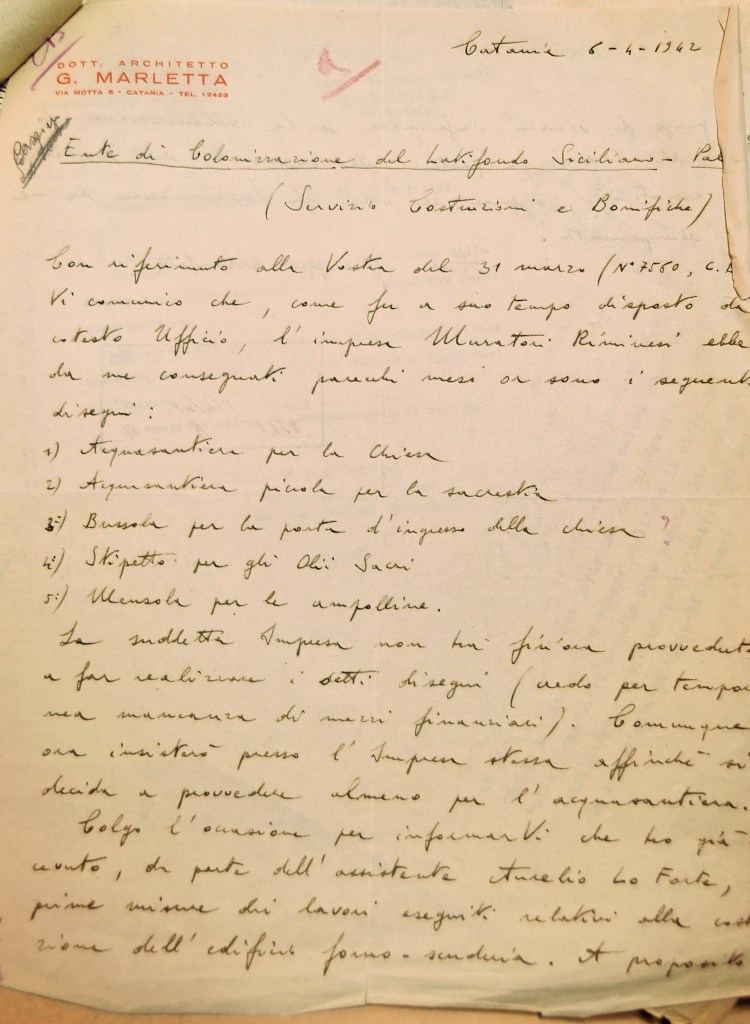 DOTT. ARCHITETTO
G. MARLETTA
VIA MOTTA 5 - CATANIA - TEL. 12493
Catania 6-4-1942
Ente di Colonizzazione del Latifondo Siciliano - Pal
(Servizio Costruzioni e Bonifiche)
Con riferimento alla Vostra del 31 marzo (N° 7560, C.
Vi comunico che, come fu a suo tempo disposto da
cotesto Ufficio, l'impresa Muratori Riminesi ebbe
da me consegnati parecchi mesi or sono i seguent
disegni:
1) Acquasantiera per la chiesa
2) Acquasantiera piccola per la sacrestia
3:) Bussola per la porta d'ingresso della chiesa ?
4:) Stipetto per gli Olii Sacri
5:) Mensola per le ampolline.
La suddetta Impresa non ha fin'ora provveduto
a far realizzare i detti disegni (credo per tempora
nea mancanza di mezzi finanziari). Comunque
ora insisterò presso l'Impresa stessa affinché si
decida a provvedere almeno per l'acquasantiera.
Colgo l'occasione per informarVi che ho già
cevuto, da parte dell'assistente Aurelio Lo Forte,
prime misure dei lavori eseguiti relativi alla cost
zione dell'edificio forno-scuderia. A proposito